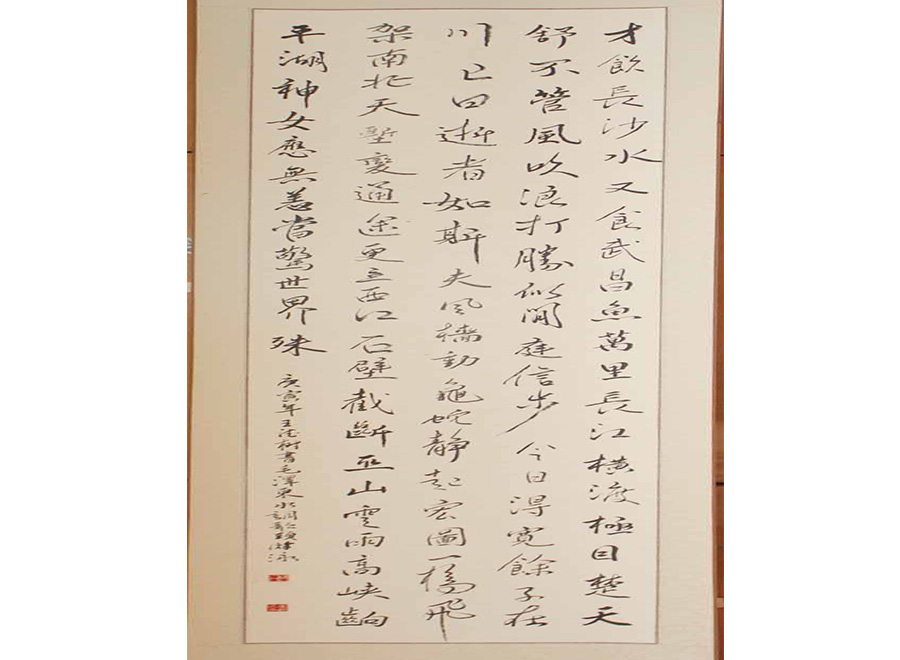 才飲長沙水又食武昌魚萬里長江橫渡極目楚天
舒不管風吹浪打勝似閒庭信步今日得寬餘子在
川上曰逝者如斯夫风檣動龜蛇靜起宏圖一橋飛
架南北天塹變通途更立西江石壁截斷巫山雲雨高峽齣
平湖神女應無恙當驚世界殊
庚寅年王樹書毛澤東水調